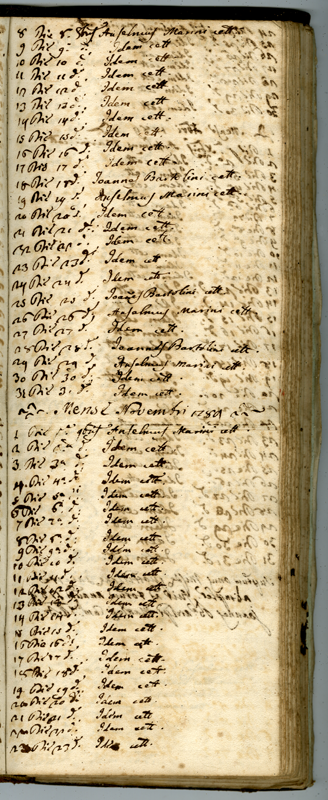 8 Die 8. Anselmus Marini cett.
9 Die 9. d. Idem cett
10 Die 10 d. Idem cett
11 Die 11 d. Idem cett.
12 Die 12 d. Idem cett
13 Die 13 d. Idem cett.
14 Die 14 d. Idem cett.
15 Die 15 d. Idem cett
16 Die 16 d. Idem cett.
17 Die 17 d. Idem cett.
18 Die 18 d. Joannes Bartolini cett.
19 Die 19 d. Anselmus Marini cett.
20 Die 20 d. Idem cett.
21 Die 21 d. Idem cett.
22 Die 22 d. Idem cett
23 Die 23 d. Idem cett
24 Die 24 d. Idem cett.
25 Die 25 d. Joannes Bartolini cett
26 Die 26 d. Anselmus Marini cett.
27 Die 27 d. Idem cett.
28 Die 28 d. Joannes Bartolini cett.
29 Die 29 d. Anselmus Marini cett
30 Die 30 d. Idem cett.
31 Die 31 d. Idem cett.
Mense Novembri
1 Die 1 Anselmus Marini cett.
2 Die 2 d. Idem cett.
3 Die 3 d. Idem cett.
4 Die 4 d. Idem cett.
5 Die 5 d. Idem cett.
6 Die 6 d. Idem cett.
7 Die 7 d. Idem cett
8 Die 8 d. Idem cett.
9 Die 9 d. Idem cett
10 Die 10 d. Idem cett.
11 Die 11 d. Idem cett
12 Die 12 d. Idem cett.
13 Die 13 d. Idem cett
14 Die 14 d. Idem cett.
15 Die 15 d. Idem cett.
16 Die 16 d. Idem cett.
17 Die 17 d. Idem cett.
18 Die 18 d. Idem cett.
19 Die 19 d. Idem cett.
20 Die 20 d. Idem cett.
21 Die 21 d. Idem cett
22 Die 22 d. Idem cett.
23 Die 23 d. Idem cett.